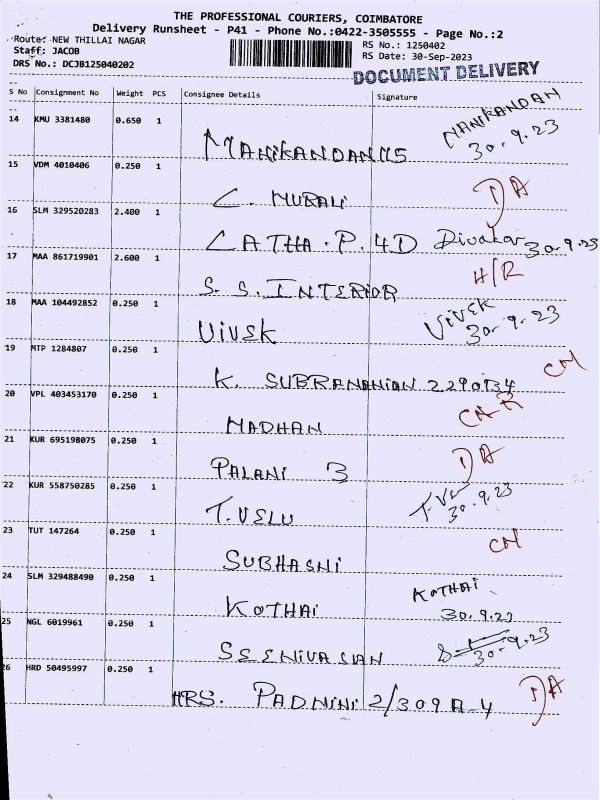 THE PROFESSIONAL COURIERS, COIMBATORE
Delivery Runsheet - P41 - Phone No.:0422-3505555 - Page No.:2
Route: NEW THILLAI NAGAR
Staff: JACOB
DRS No.: DCJB125040202
RS No.: 1250402
RS Date: 30-Sep-2023
DOCUMENT DELIVERY
S No Consignment No Weight PCS Consignee Details Signature
14 KMU 3381480 0.650 1 MANIKANDAN MANIKANDAN
30.9.23
15 VDM 4010406 0.250 1 C. MURALI DA
16 SLM 329520283 2.400 1 LATHA.P. 4D Divakar 30.9.23
17 MAA 861719901 2.600 1 S.S. INTERIOR H/R
18 MAA 104492852 0.250 1 VIVEK VIVEK
30.9.23
19 MTP 1284807 0.250 1 K. SUBRANANIAN CN
20 VPL 403453170 0.250 1 MADHAN CN
21 KUR 695198075 0.250 1 PALANI 3 DA
22 KUR 558750285 0.250 1 T.VELU
30.9.23
23 TUT 147264 0.250 1 SUBHASHI CN
24 SLM 329488490 0.250 1 KOTHAI KOTHAI
30.9.23
25 NGL 6019961 0.250 1 SEENIVASAN
30.9.23
26 HRD 50495997 0.250 1 MRS. PADNINI 2/309 A-4 DA